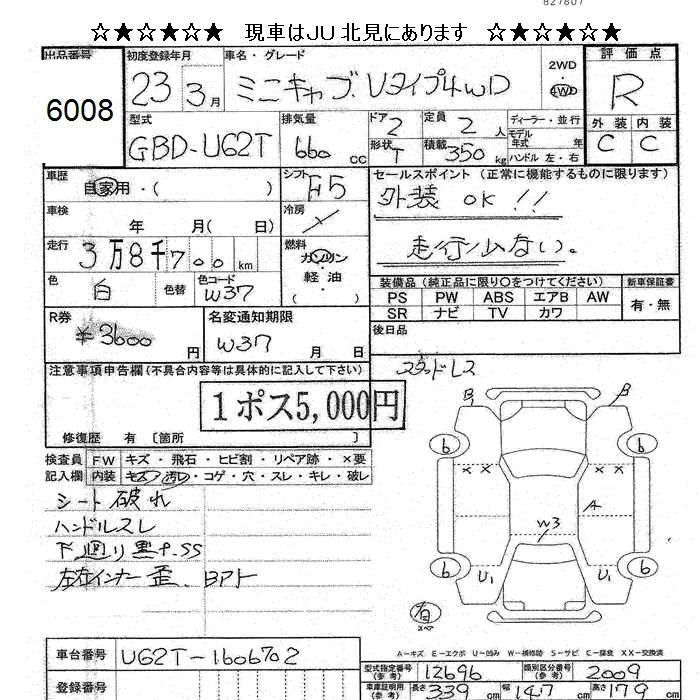 827807
☆★☆★☆★ 現車はJU北見にあります ☆★☆★☆★
出品番号 初度登録年月 車名・グレード 2WD・4WD 評価点
6008 23年 3月 ミニキャブ.Vタイプ4WD R
型式 排気量 ドア 定員 ディーラー・並行 外装 内装
GBD-U62T 660cc 2 2人 モデル年式 年 C C
形状 T 積載 350kg ハンドル 左・右
車歴 自家用・( ) シフト F5 セールスポイント(正常に機能するものに限ります)
車検 年 月(日) 冷房 外装 OK!!
走行 3万8千700km 燃料 ガソリン 軽油 ( ) 走行少ない。
色 白 色替 色コード W37
装備品(純正品に限り○をつけてください) 新車保証書
PS PW ABS エアB AW 有・無
SR ナビ TV カワ
R券 ¥3600円 名変通知期限 W37 月 日 後日品
注意事項申告欄(不具合内容等は具体的に記入して下さい)
1ポス5,000円
修復歴 有〔箇所 〕
検査員記入欄 FW キズ・飛石・ヒビ割・リペア跡・×要
内装 キズ・汚レ・コゲ・穴・スレ・キレ・破レ
シート破れ
ハンドルスレ
下廻り黒P.SS
B B
6 6
× × × ×
A
W3
6 6
U1 U1
A-キズ E-エクボ U-凹み W-補修跡 S-サビ C-腐食 XX-交換済
車台番号 U62T-1606702
型式指定番号(参考) 12696 類別区分番号(参考) 2009
登録番号
車庫証明用(参考) 長さ 339cm 幅 147cm 高さ 179cm